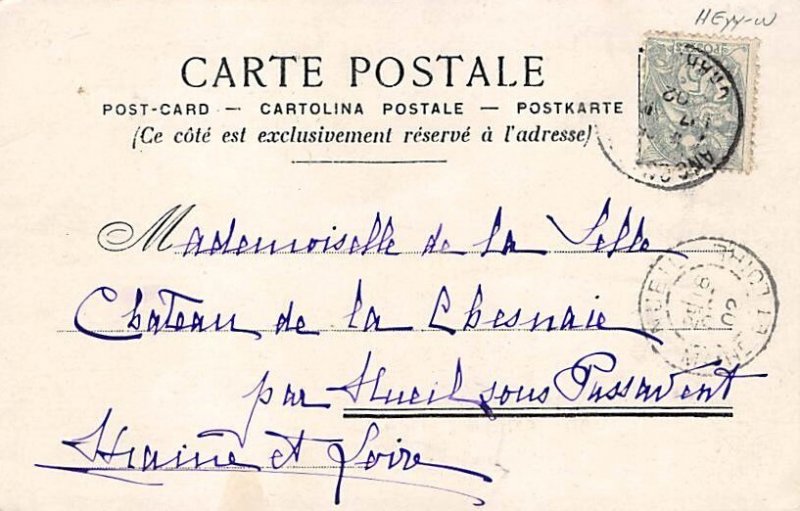 HEyy-w
CARTE POSTALE
POST-CARD — CARTOLINA POSTALE — POSTKARTE
(Ce côté est exclusivement réservé à l'adresse)
Mademoiselle de la Selle
Chateau de la Chesnaie
par Nueil sous Passavent
Maine et Loire